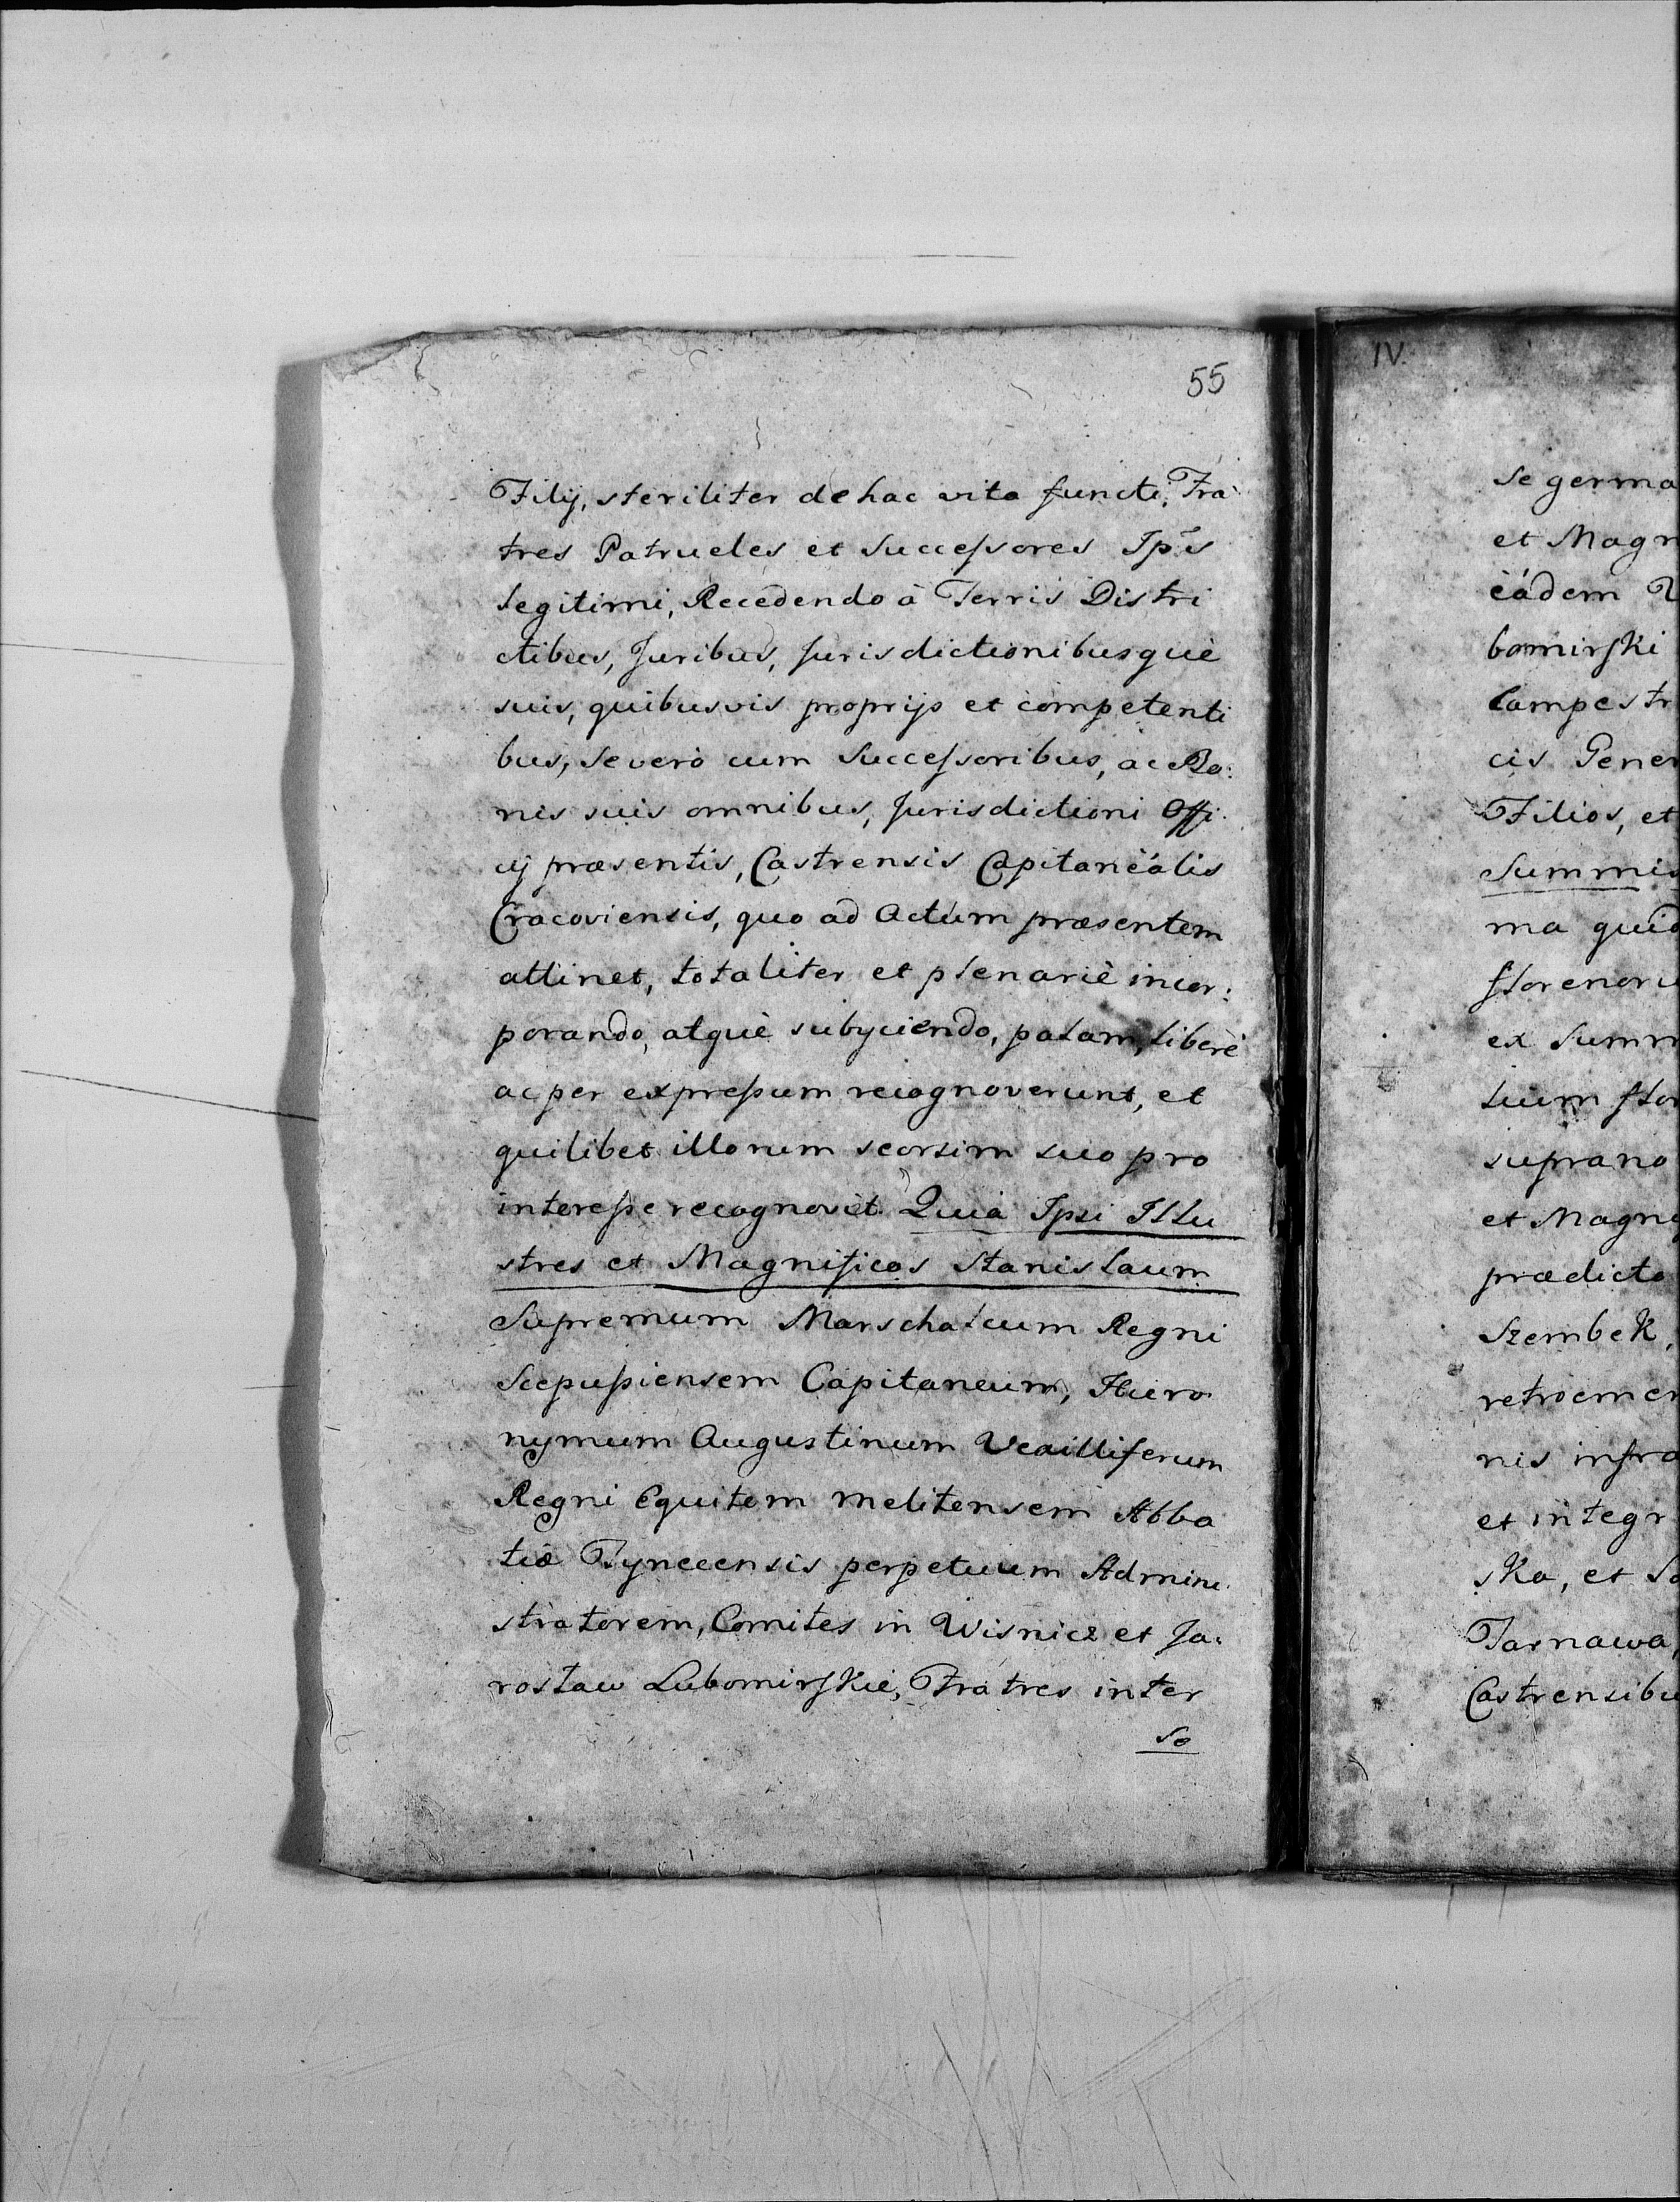 55
Filij, steriliter de hac vita functi, Fra
tres Patrueles et Successores Ip̃s
legitimi, Recedendo à Terris Distri
ctibus, Juribus, Jurisdictionibusquè
suis, quibusvis proprijs et competenti
bus, Se verò cum Successoribus, ac Bo:
nis suis omnibus, Jurisdictioni Offi
cij præsentis, Castrensis Capitaneális
Cracoviensis, quo ad Actum præsentem
attinet, totaliter et plenariè incor:
porando, atquè subyciendo, palam, liberè
ac per expressum recognoverunt, et
quilibet illorum seorsim suo pro
interesse recognovit. Quia Ipsi Illu
stres et Magnificos Stanislaum
Supremum Marschalcum Regni
Scepusiensem Capitaneum, Hiero
nymum Augustinum Vexilliferum
Regni Equitem melitensem Abba
tiæ Tynecensis perpetuum Admini
stratorem, Comites in Wisnicz et Ja:
rosław Lubomirskie, Fratres inter
se
IV.
Se germa
et Magn
eádem
bomirski
Campestr
cis Gener
Filios, et
Summis
ma quid
florenoru
ex Summ
lium flor
suprano
et Magni
prædicto
Szembek,
retroemer
nis infra
et integr
ska, et Sa
Tarnawa,
Castrensibu